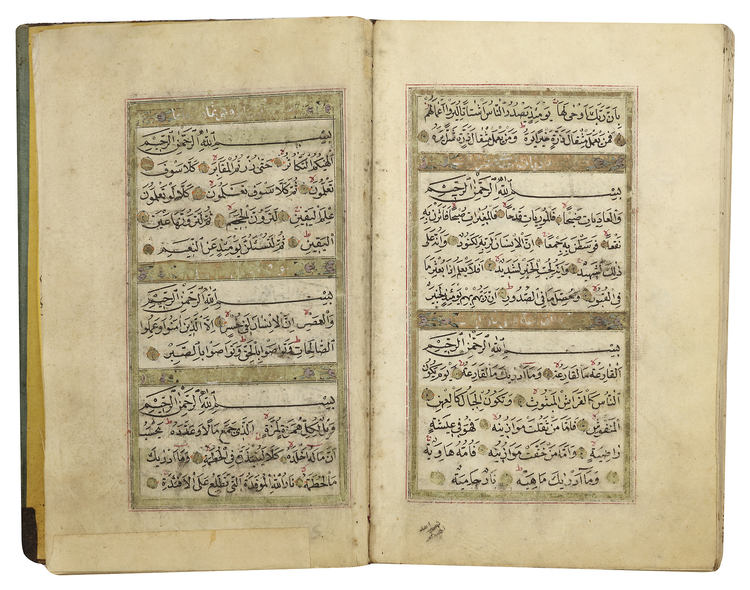 بِاَنَّ رَبَّكَ اَوْحٰى لَهَا يَوْمَئِذٍ يَصْدُرُ النَّاسُ اَشْتَاتًا لِيُرَوْا اَعْمَالَهُمْ
فَمَنْ يَعْمَلْ مِثْقَالَ ذَرَّةٍ خَيْرًا يَرَهُ وَمَنْ يَعْمَلْ مِثْقَالَ ذَرَّةٍ شَرًّا يَرَهُ
بِسْمِ اللّٰهِ الرَّحْمٰنِ الرَّحِيمِ
وَالْعَادِيَاتِ ضَبْحًا فَالْمُورِيَاتِ قَدْحًا فَالْمُغِيرَاتِ صُبْحًا فَاَثَرْنَ بِهِ
نَقْعًا فَوَسَطْنَ بِهِ جَمْعًا اِنَّ الْاِنْسَانَ لِرَبِّهِ لَكَنُودٌ وَاِنَّهُ عَلٰى
ذٰلِكَ لَشَهِيدٌ وَاِنَّهُ لِحُبِّ الْخَيْرِ لَشَدِيدٌ اَفَلَا يَعْلَمُ اِذَا بُعْثِرَ مَا
فِي الْقُبُورِ وَحُصِّلَ مَا فِي الصُّدُورِ اِنَّ رَبَّهُمْ بِهِمْ يَوْمَئِذٍ لَخَبِيرٌ
بِسْمِ اللّٰهِ الرَّحْمٰنِ الرَّحِيمِ
اَلْقَارِعَةُ مَا الْقَارِعَةُ وَمَا اَدْرٰيكَ مَا الْقَارِعَةُ يَوْمَ يَكُونُ
النَّاسُ كَالْفَرَاشِ الْمَبْثُوثِ وَتَكُونُ الْجِبَالُ كَالْعِهْنِ
الْمَنْفُوشِ فَاَمَّا مَنْ ثَقُلَتْ مَوَازِينُهُ فَهُوَ فِي عِيشَةٍ
رَاضِيَةٍ وَاَمَّا مَنْ خَفَّتْ مَوَازِينُهُ فَاُمُّهُ هَاوِيَةٌ
وَمَا اَدْرٰيكَ مَا هِيَهْ نَارٌ حَامِيَةٌ
بِسْمِ اللّٰهِ الرَّحْمٰنِ الرَّحِيمِ
اَلْهٰيكُمُ التَّكَاثُرُ حَتّٰى زُرْتُمُ الْمَقَابِرَ كَلَّا سَوْفَ
تَعْلَمُونَ ثُمَّ كَلَّا سَوْفَ تَعْلَمُونَ كَلَّا لَوْ تَعْلَمُونَ
عِلْمَ الْيَقِينِ لَتَرَوُنَّ الْجَحِيمَ ثُمَّ لَتَرَوُنَّهَا عَيْنَ
الْيَقِينِ ثُمَّ لَتُسْئَلُنَّ يَوْمَئِذٍ عَنِ النَّعِيمِ
بِسْمِ اللّٰهِ الرَّحْمٰنِ الرَّحِيمِ
وَالْعَصْرِ اِنَّ الْاِنْسَانَ لَفِي خُسْرٍ اِلَّا الَّذِينَ اٰمَنُوا وَعَمِلُوا
الصَّالِحَاتِ وَتَوَاصَوْا بِالْحَقِّ وَتَوَاصَوْا بِالصَّبْرِ
بِسْمِ اللّٰهِ الرَّحْمٰنِ الرَّحِيمِ
وَيْلٌ لِكُلِّ هُمَزَةٍ لُمَزَةٍ اَلَّذِي جَمَعَ مَالًا وَعَدَّدَهُ يَحْسَبُ
اَنَّ مَالَهُ اَخْلَدَهُ كَلَّا لَيُنْبَذَنَّ فِي الْحُطَمَةِ وَمَا اَدْرٰيكَ
مَا الْحُطَمَةُ نَارُ اللّٰهِ الْمُوقَدَةُ اَلَّتِي تَطَّلِعُ عَلَى الْاَفْئِدَةِ